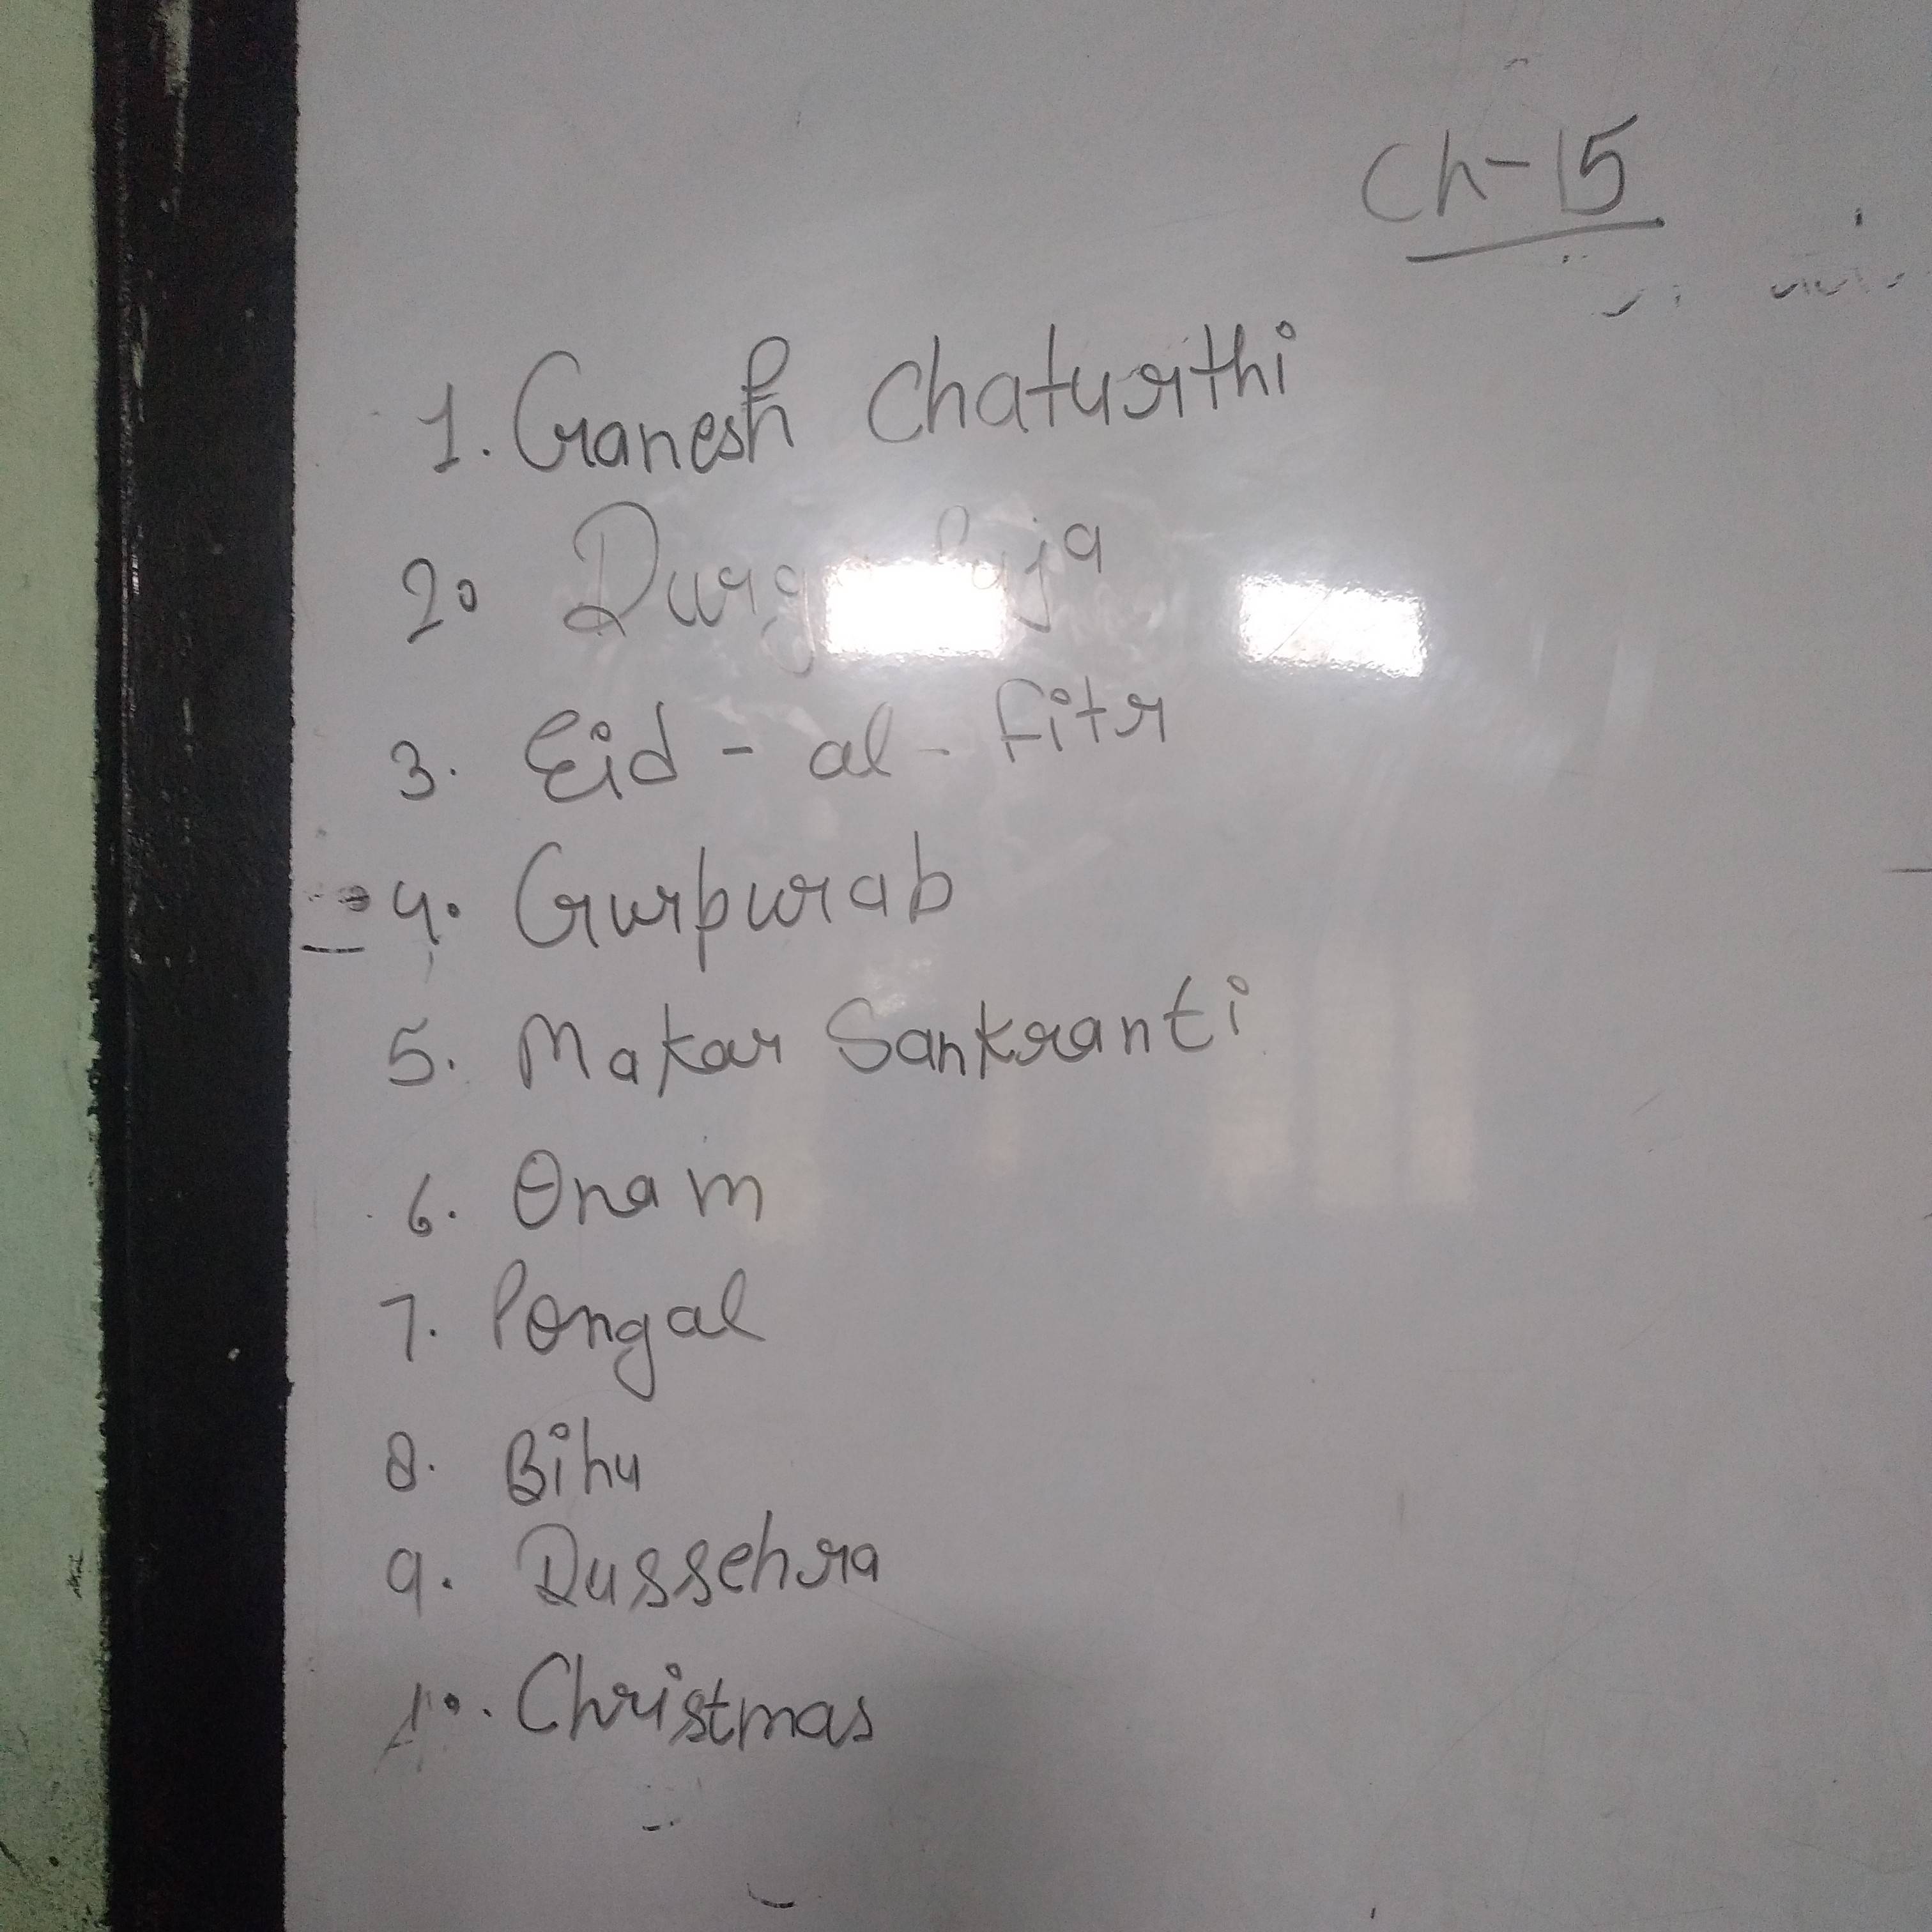 Ch-15
1. Ganesh Chaturthi
2. Durga Puja
3. Eid - al - fitr
4. Gurpurab
5. Makar Sankranti
6. Onam
7. Pongal
8. Bihu
9. Dussehra
10. Christmas